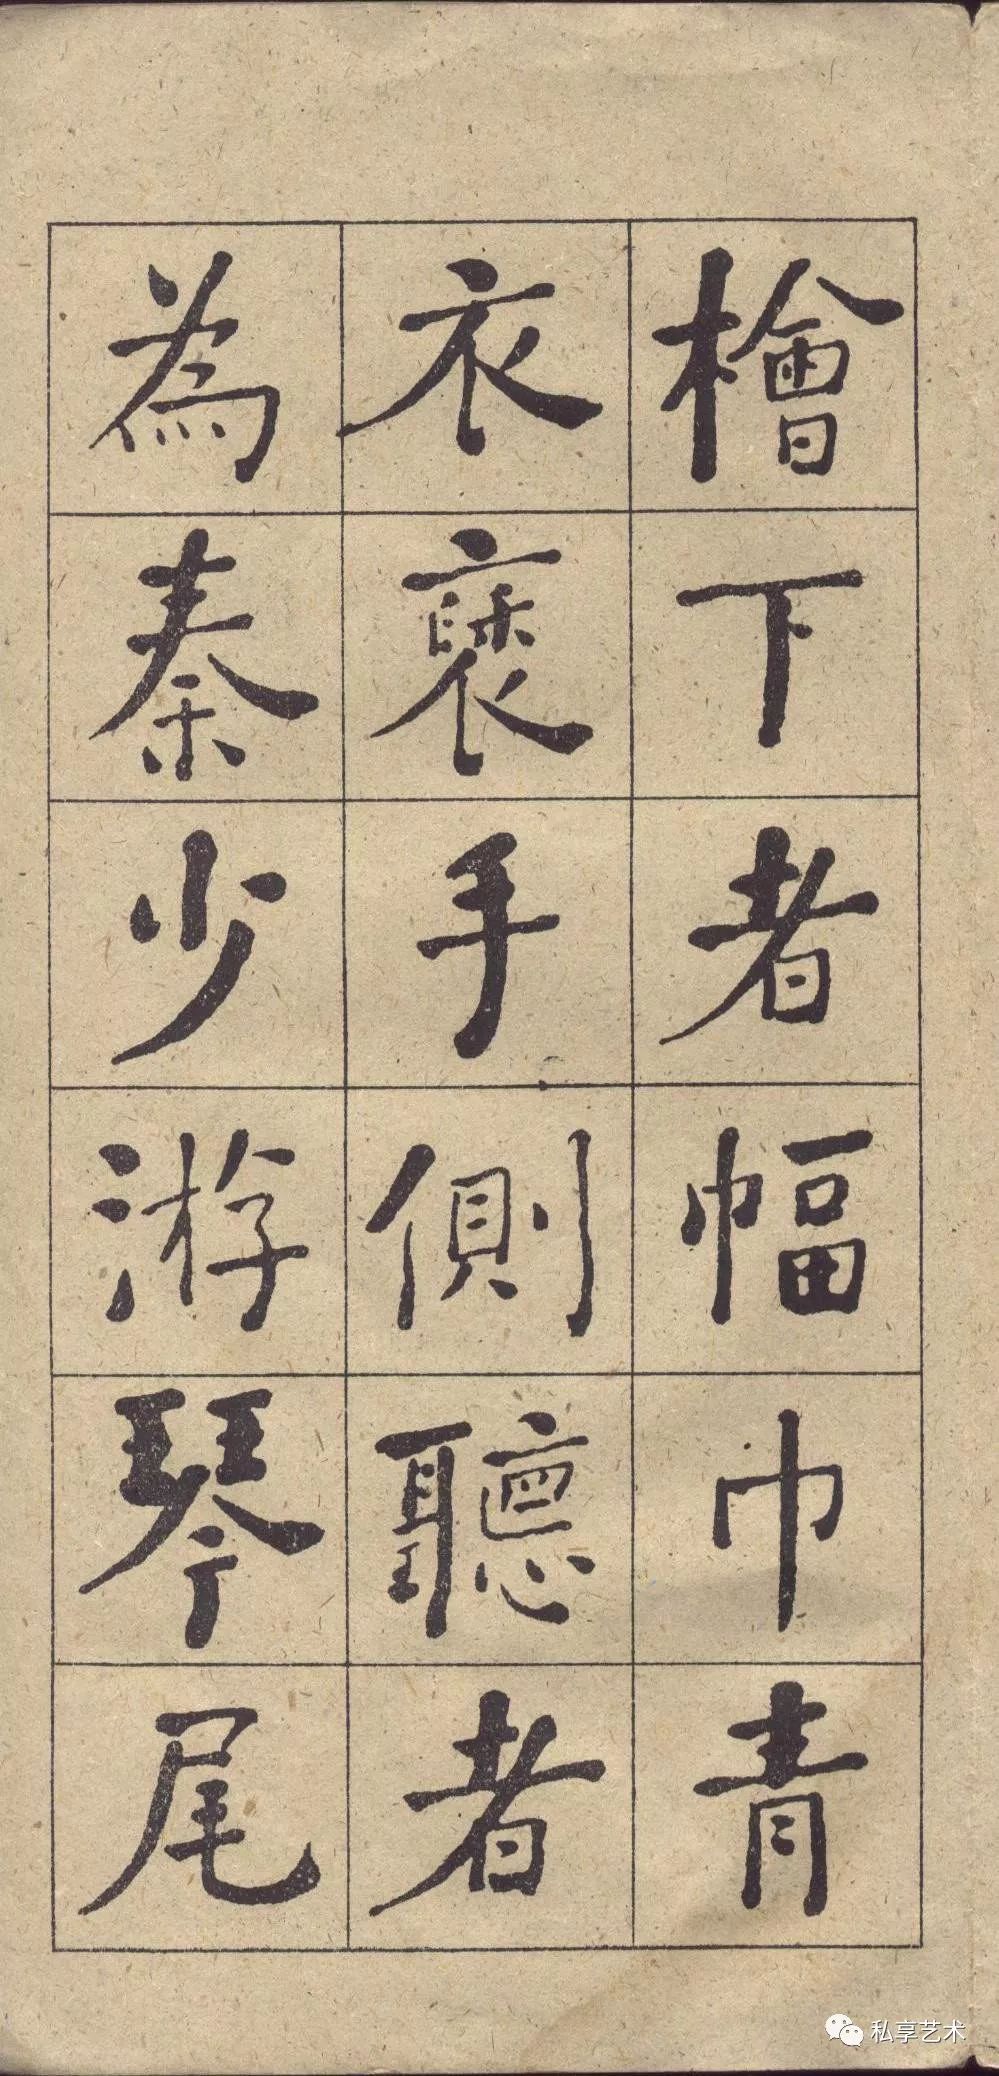 檜下者幅巾青
衣褎手側聽者
為秦少游琴尾
私享艺术